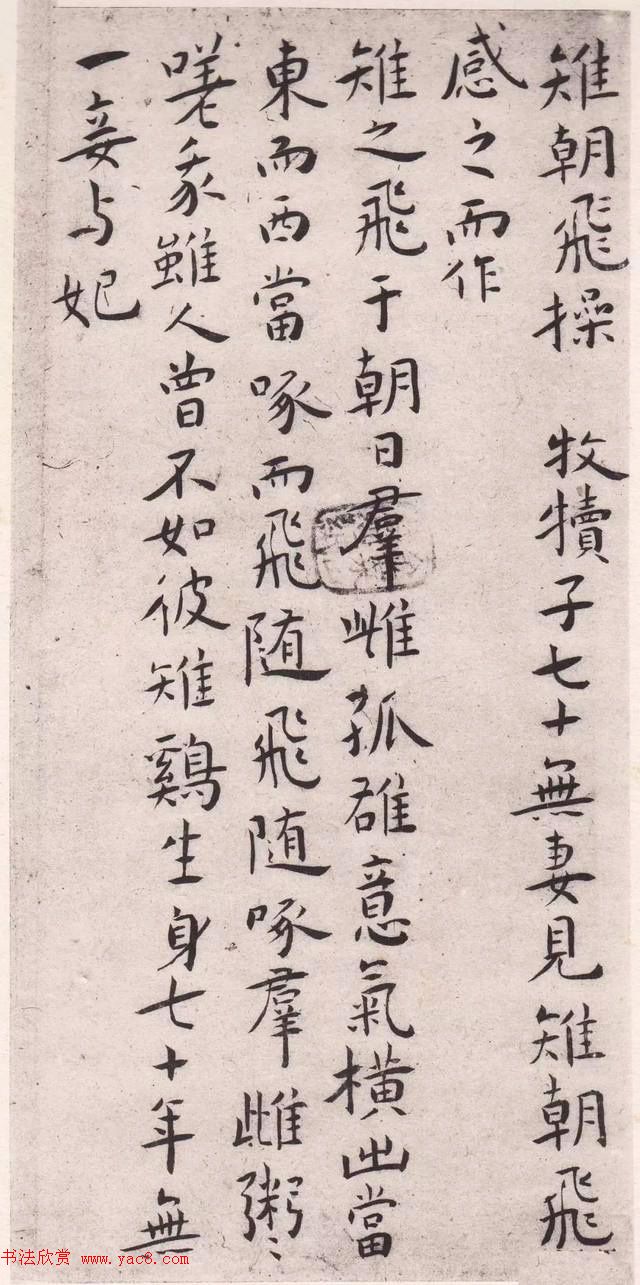 雉朝飛操 牧犢子七十無妻見雉朝飛
感之而作
雉之飛于朝日羣雌孤雄意氣橫出當
東而西當啄而飛随飛随啄羣雌粥〻
嗟我雖人曾不如彼雉鷄生身七十年無
一妾与妃
书法欣赏 www.yac8.com